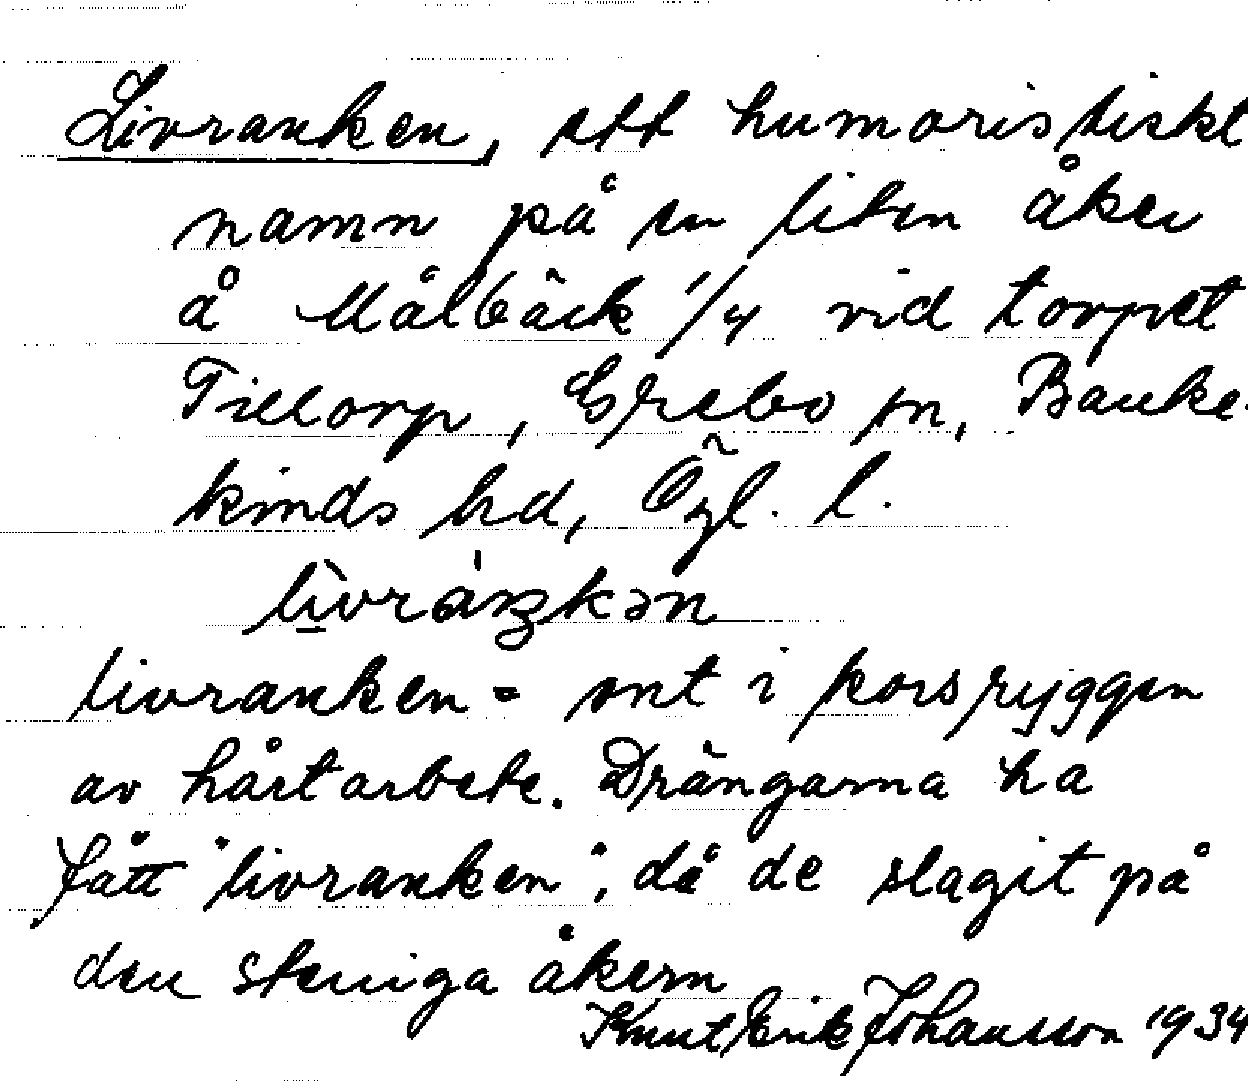 Livranken, ett humoristiskt
namn på en liten åker
å Målbäck 1/4 vid torpet
Tilltorp, Grebo sn, Banke-
kinds hd, Ögl. l.
livranken = ont i korsryggen
av hårt arbete. Drängarna ha
fått "livranken", då de slagit på
den steniga åkern
Knut Erik Johansson 1934